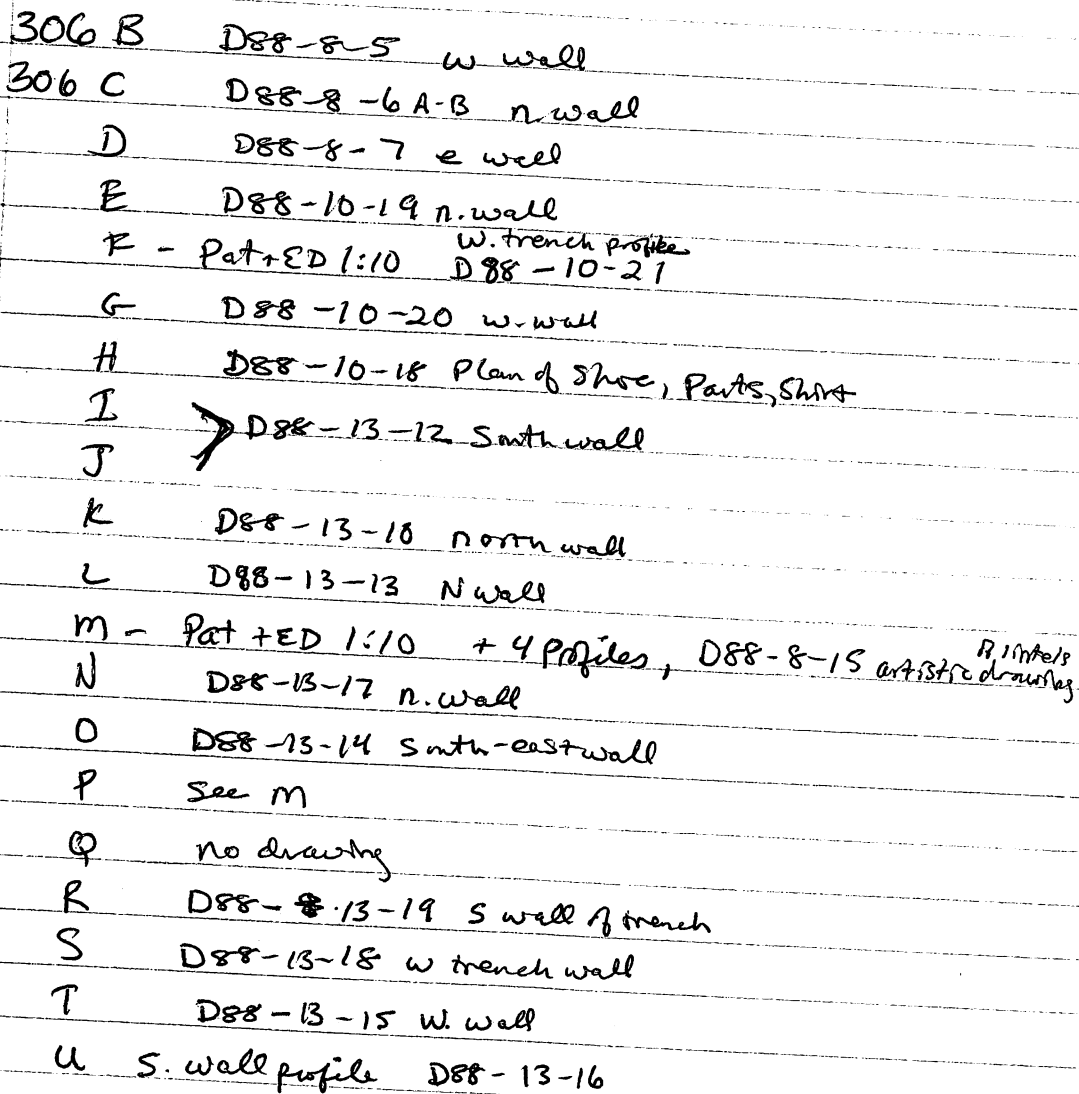 306 B D88-8-5 w wall
306 C D88-8-6 A-B n. wall
D D88-8-7 e wall
E D88-10-19 n. wall
F - Pat + ED 1:10 W. trench profile D88-10-21
G D88-10-20 w. wall
H D88-10-18 Plan of Shoe, Pants, Shirt
I
D88-13-12 South wall
J
K D88-13-10 north wall
L D88-13-13 N wall
M - Pat + ED 1:10 + 4 Profiles, D88-8-15 artistic drawing
N D88-13-17 n. wall
O D88-13-14 South-east wall
P See M
Q no drawing
R D88-13-19 S wall of trench
S D88-13-18 w trench wall
T D88-13-15 W. wall
U S. wall profile D88-13-16